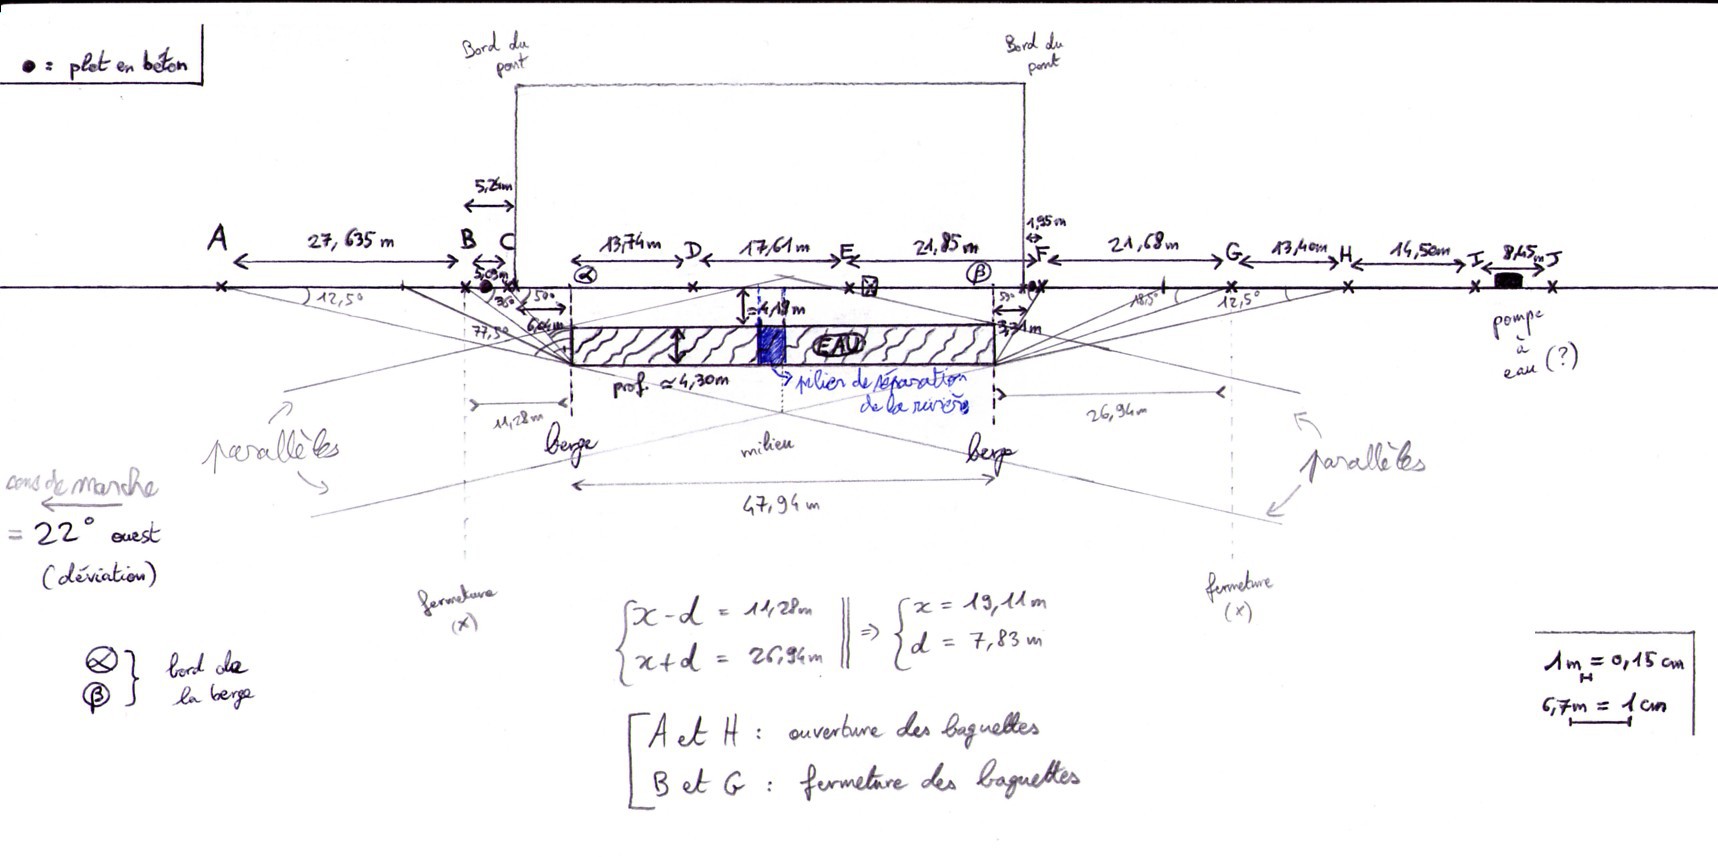 ● = plot en béton
Bord du
pont
Bord du
pont
5,24m
1,95m
A
27,635 m
B
C
5,03m
13,74m
D
17,61m
E
21,85m
F
21,68m
G
13,40m
H
14,50m
I
8,45m
J
α
β
12,5°
35°
50°
77,5°
6,04m
≃4,19m
50°
3,71m
18,5°
12,5°
EAU
prof. ≃ 4,30m
pilier de séparation
de la rivière
pompe
à
eau (?)
11,28m
26,94m
berge
milieu
berge
47,94 m
parallèles
parallèles
sens de marche
= 22° ouest
(déviation)
fermeture
(x)
fermeture
(x)
α
β
bord de
la berge
x-d = 11,28m
x+d = 26,94m
⇒
x = 19,11m
d = 7,83 m
A et H : ouverture des baguettes
B et G : fermeture des baguettes
1m = 0,15 cm
6,7m = 1 cm